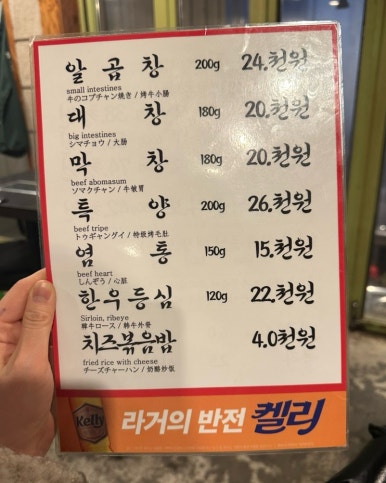 알곱창 200g 24.천원
small intestines
牛のコプチャン焼き / 烤牛小腸
대창 180g 20.천원
big intestines
シマチョウ / 大腸
막창 180g 20.천원
beef abomasum
ソマクチャン / 牛皺胃
특양 200g 26.천원
beef tripe
トゥギャングイ / 特級烤毛肚
염통 150g 15.천원
beef heart
しんぞう / 心脏
한우등심 120g 22.천원
Sirloin, ribeye
韓牛ロース / 韩牛外脊
치즈볶음밥 4.0천원
fried rice with cheese
チーズチャーハン / 奶酪炒饭
Kelly 라거의 반전 켈리